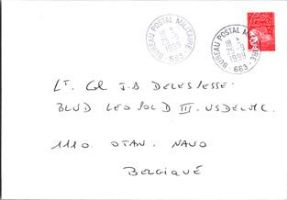 BUREAU POSTAL MILITAIRE
1999
663
BUREAU POSTAL MILITAIRE
1999
663
LT. Col J.B DELESPESSE.
BLVD LEOPOLD III. USDELMC.
1110 OTAN. NAVO
BELGIQUE